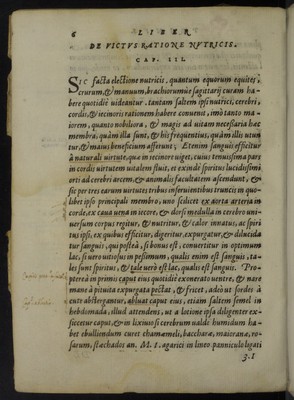 6 LIBER
DE VICTVS RATIONE NVTRICIS.
CAP. III.
SIC facta electione nutricis, quantum equorum equites,
crurum, & manuum, brachiorumue sagittarij curam ha-
bere quotidie uideantur. tantam saltem ipsi nutrici, cerebri,
cordis, & iecinoris rationem habere conuenit, imò tato ma-
iorem, quanto nobiliora, & magis ad uitam necessaria haec
membra, quàm illa sunt, & his frequentius, quàm illis utun
tur, & maius beneficium afferunt; Etenim sanguis efficitur
à naturali uirtute, qua in iecinore uiget, cuius tenuissima pars
in cordis uirtutem uitalem fluit, et exindè spiritus lucidissimi
orti ad cerebri arcem, & animalis facultatem ascendunt, &
sic per tres earum uirtutes tribus inseruientibus truncis in quo-
libet ipso principali membro, uno scilicet ex aorta arteria in
corde, ex caua uena in iecore, & dorsi medulla in cerebro uni-
uersum corpus regitur, & nutritur, & calor innatus, ac spiri
tus ipsi, ex quibus efficitur, digeritur, expurgatur, & dilucida
tur sanguis, qui posteà, si bonus est, conuertitur in optimum
lac, si uero uitiosus in pessimum, qualis enim est sanguis, ta-
les sunt spiritus, & tale uerò est lac, qualis est sanguis. Pro-
pterea in primis caput eius quotidiè exonerato uentre, & nare
mane à pituita expurgata pectat, & fricet, adeò ut sordes à
cute abstergantur, abluat caput eius, etiam saltem semel in
hebdomada, illud attendens, ut a lotione ipsa diligenter ex-
siccetur caput, & in lixiuio si cerebrum ualde humidum ha-
bet ebullendum curet chamaemeli, baccharae, maioranae, ro-
sarum, stoechados an. M. i. agarici in lineo panniculo ligati
3. I